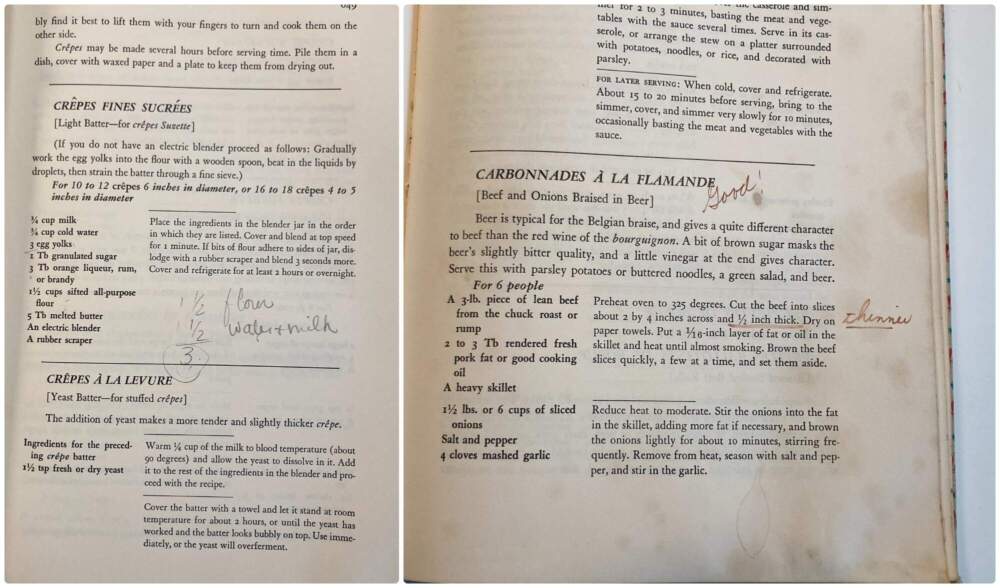 649
bly find it best to lift them with your fingers to turn and cook them on the
other side.
Crêpes may be made several hours before serving time. Pile them in a
dish, cover with waxed paper and a plate to keep them from drying out.
CRÊPES FINES SUCRÉES
[Light Batter—for crêpes Suzette]
(If you do not have an electric blender proceed as follows: Gradually
work the egg yolks into the flour with a wooden spoon, beat in the liquids by
droplets, then strain the batter through a fine sieve.)
For 10 to 12 crêpes 6 inches in diameter, or 16 to 18 crêpes 4 to 5
inches in diameter
¾ cup milk
¾ cup cold water
3 egg yolks
1 Tb granulated sugar
3 Tb orange liqueur, rum,
or brandy
1½ cups sifted all-purpose
flour
5 Tb melted butter
An electric blender
A rubber scraper
Place the ingredients in the blender jar in the order
in which they are listed. Cover and blend at top speed
for 1 minute. If bits of flour adhere to sides of jar, dis-
lodge with a rubber scraper and blend 3 seconds more.
Cover and refrigerate for at least 2 hours or overnight.
1 ½ flour
1 ½ water + milk
3
CRÊPES À LA LEVURE
[Yeast Batter—for stuffed crêpes]
The addition of yeast makes a more tender and slightly thicker crêpe.
Ingredients for the preced-
ing crêpe batter
1½ tsp fresh or dry yeast
Warm ¼ cup of the milk to blood temperature (about
90 degrees) and allow the yeast to dissolve in it. Add
it to the rest of the ingredients in the blender and pro-
ceed with the recipe.
Cover the batter with a towel and let it stand at room
temperature for about 2 hours, or until the yeast has
worked and the batter looks bubbly on top. Use imme-
diately, or the yeast will overferment.
the casserole and sim-
mer for 2 to 3 minutes, basting the meat and vege-
tables with the sauce several times. Serve in its cas-
serole, or arrange the stew on a platter surrounded
with potatoes, noodles, or rice, and decorated with
parsley.
FOR LATER SERVING: When cold, cover and refrigerate.
About 15 to 20 minutes before serving, bring to the
simmer, cover, and simmer very slowly for 10 minutes,
occasionally basting the meat and vegetables with the
sauce.
CARBONNADES À LA FLAMANDE
Good!
[Beef and Onions Braised in Beer]
Beer is typical for the Belgian braise, and gives a quite different character
to beef than the red wine of the bourguignon. A bit of brown sugar masks the
beer's slightly bitter quality, and a little vinegar at the end gives character.
Serve this with parsley potatoes or buttered noodles, a green salad, and beer.
For 6 people
A 3-lb. piece of lean beef
from the chuck roast or
rump
2 to 3 Tb rendered fresh
pork fat or good cooking
oil
A heavy skillet
Preheat oven to 325 degrees. Cut the beef into slices
about 2 by 4 inches across and ½ inch thick. Dry on
paper towels. Put a 1/16-inch layer of fat or oil in the
skillet and heat until almost smoking. Brown the beef
slices quickly, a few at a time, and set them aside.
thinner
1½ lbs. or 6 cups of sliced
onions
Salt and pepper
4 cloves mashed garlic
Reduce heat to moderate. Stir the onions into the fat
in the skillet, adding more fat if necessary, and brown
the onions lightly for about 10 minutes, stirring fre-
quently. Remove from heat, season with salt and pep-
per, and stir in the garlic.